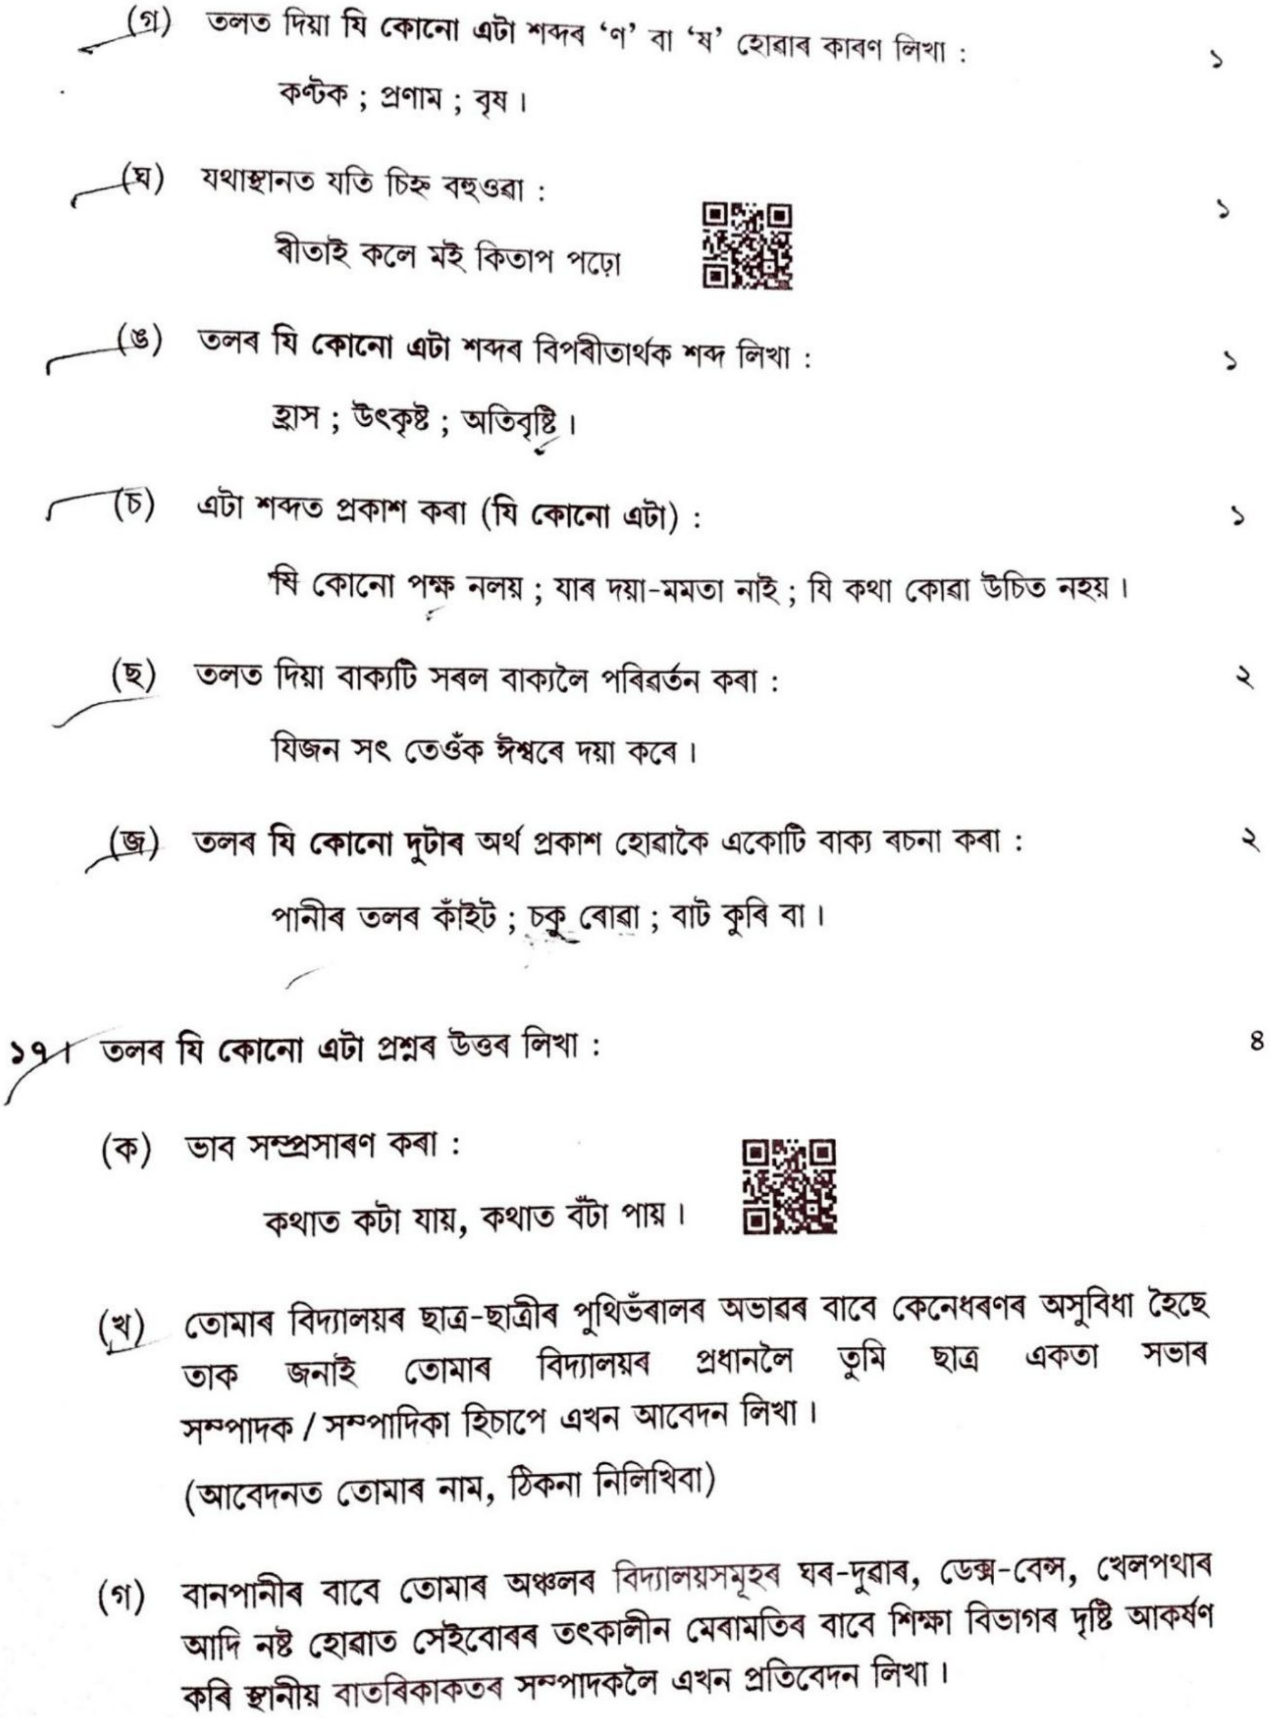 (গ) তলত দিয়া যি কোনো এটা শব্দৰ ‘ণ’ বা ‘ষ’ হোৱাৰ কাৰণ লিখা : ১
কণ্টক ; প্ৰণাম ; বৃষ ।
(ঘ) যথাস্থানত যতি চিহ্ন বহুওৱা : ১
ৰীতাই কলে মই কিতাপ পঢ়ো
(ঙ) তলৰ যি কোনো এটা শব্দৰ বিপৰীতাৰ্থক শব্দ লিখা : ১
হ্ৰাস ; উৎকৃষ্ট ; অতিবৃষ্টি ।
(চ) এটা শব্দত প্ৰকাশ কৰা (যি কোনো এটা) : ১
যি কোনো পক্ষ নলয় ; যাৰ দয়া-মমতা নাই ; যি কথা কোৱা উচিত নহয় ।
(ছ) তলত দিয়া বাক্যটি সৰল বাক্যলৈ পৰিৱৰ্তন কৰা : ২
যিজন সৎ তেওঁক ঈশ্বৰে দয়া কৰে ।
(জ) তলৰ যি কোনো দুটাৰ অৰ্থ প্ৰকাশ হোৱাকৈ একোটি বাক্য ৰচনা কৰা : ২
পানীৰ তলৰ কাঁইট ; চকু ৰোৱা ; বাট কুৰি বা ।
১৭। তলৰ যি কোনো এটা প্ৰশ্নৰ উত্তৰ লিখা : ৪
(ক) ভাব সম্প্ৰসাৰণ কৰা :
কথাত কটা যায়, কথাত বঁটা পায় ।
(খ) তোমাৰ বিদ্যালয়ৰ ছাত্ৰ-ছাত্ৰীৰ পুথিভঁৰালৰ অভাৱৰ বাবে কেনেধৰণৰ অসুবিধা হৈছে
তাক জনাই তোমাৰ বিদ্যালয়ৰ প্ৰধানলৈ তুমি ছাত্ৰ একতা সভাৰ
সম্পাদক / সম্পাদিকা হিচাপে এখন আবেদন লিখা ।
(আবেদনত তোমাৰ নাম, ঠিকনা নিলিখিবা)
(গ) বানপানীৰ বাবে তোমাৰ অঞ্চলৰ বিদ্যালয়সমূহৰ ঘৰ-দুৱাৰ, ডেক্স-বেন্স, খেলপথাৰ
আদি নষ্ট হোৱাত সেইবোৰৰ তৎকালীন মেৰামতিৰ বাবে শিক্ষা বিভাগৰ দৃষ্টি আকৰ্ষণ
কৰি স্থানীয় বাতৰিকাকতৰ সম্পাদকলৈ এখন প্ৰতিবেদন লিখা ।